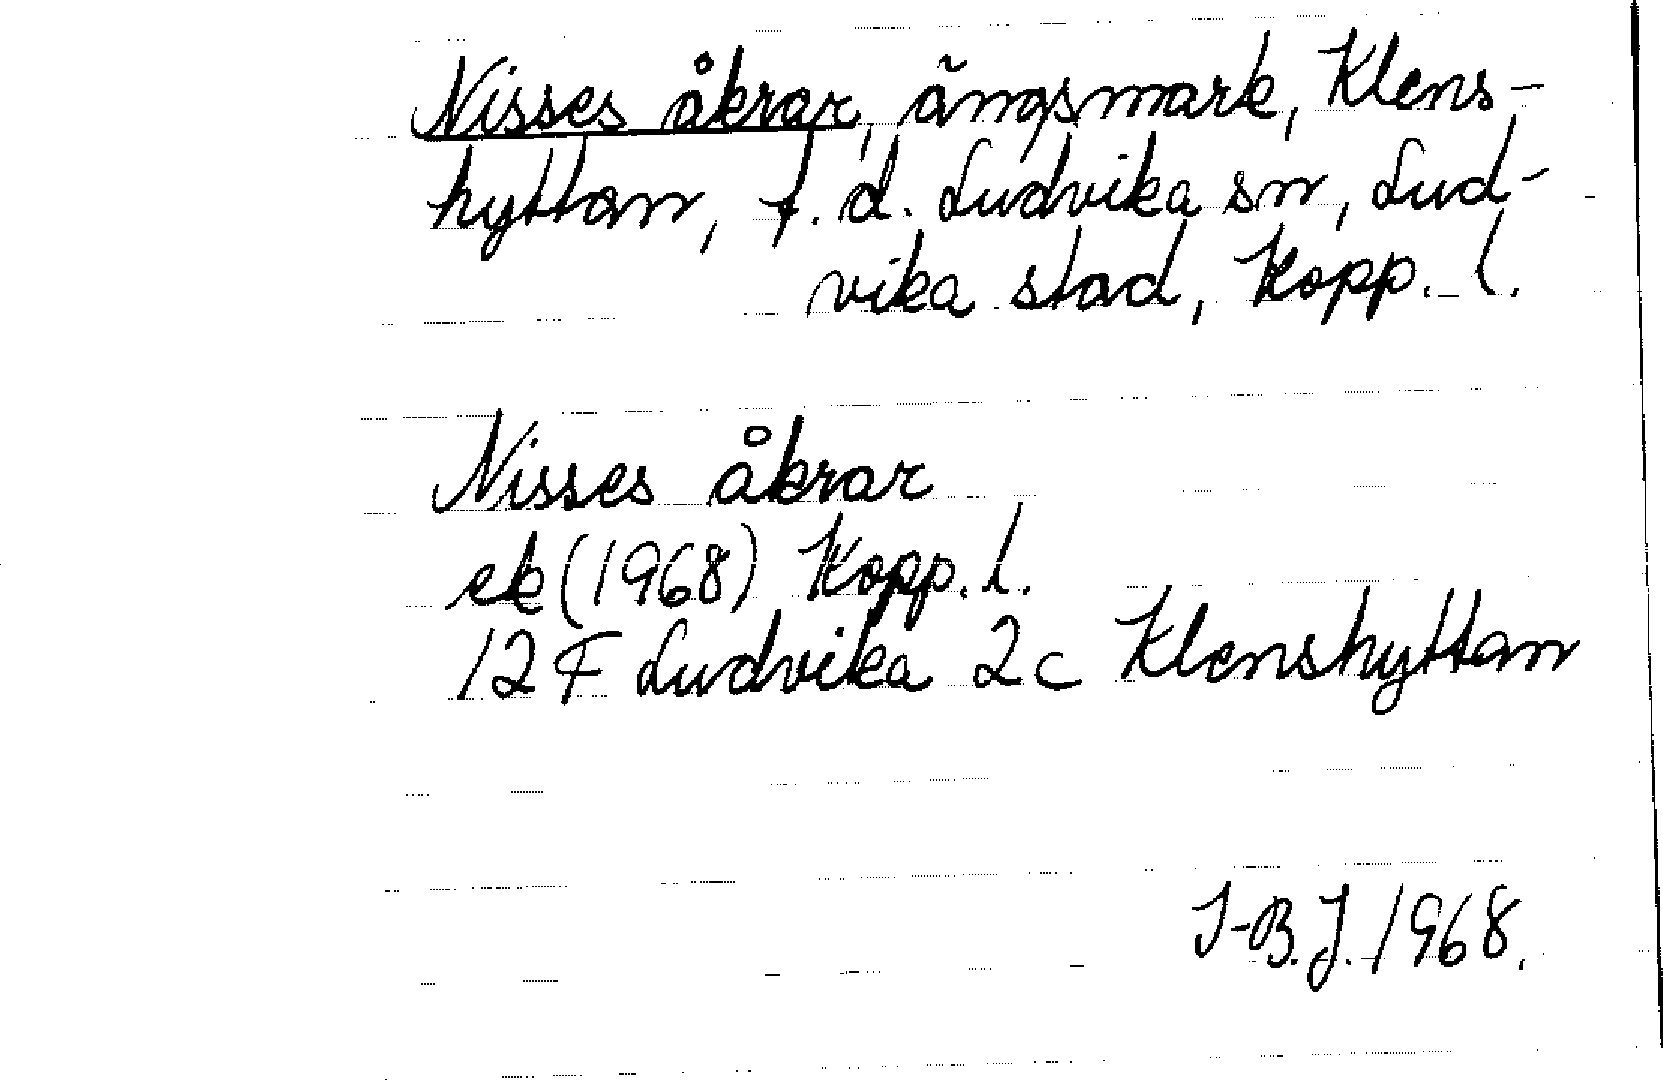 Nisses åkrar, ängsmark, Klens-
hyttan, f.d. Ludvika sn, Lud-
vika stad, Kopp. l.
Nisses åkrar
ek (1968) Kopp. l.
12 F Ludvika 2c Klenshyttan
I-B.J. 1968.